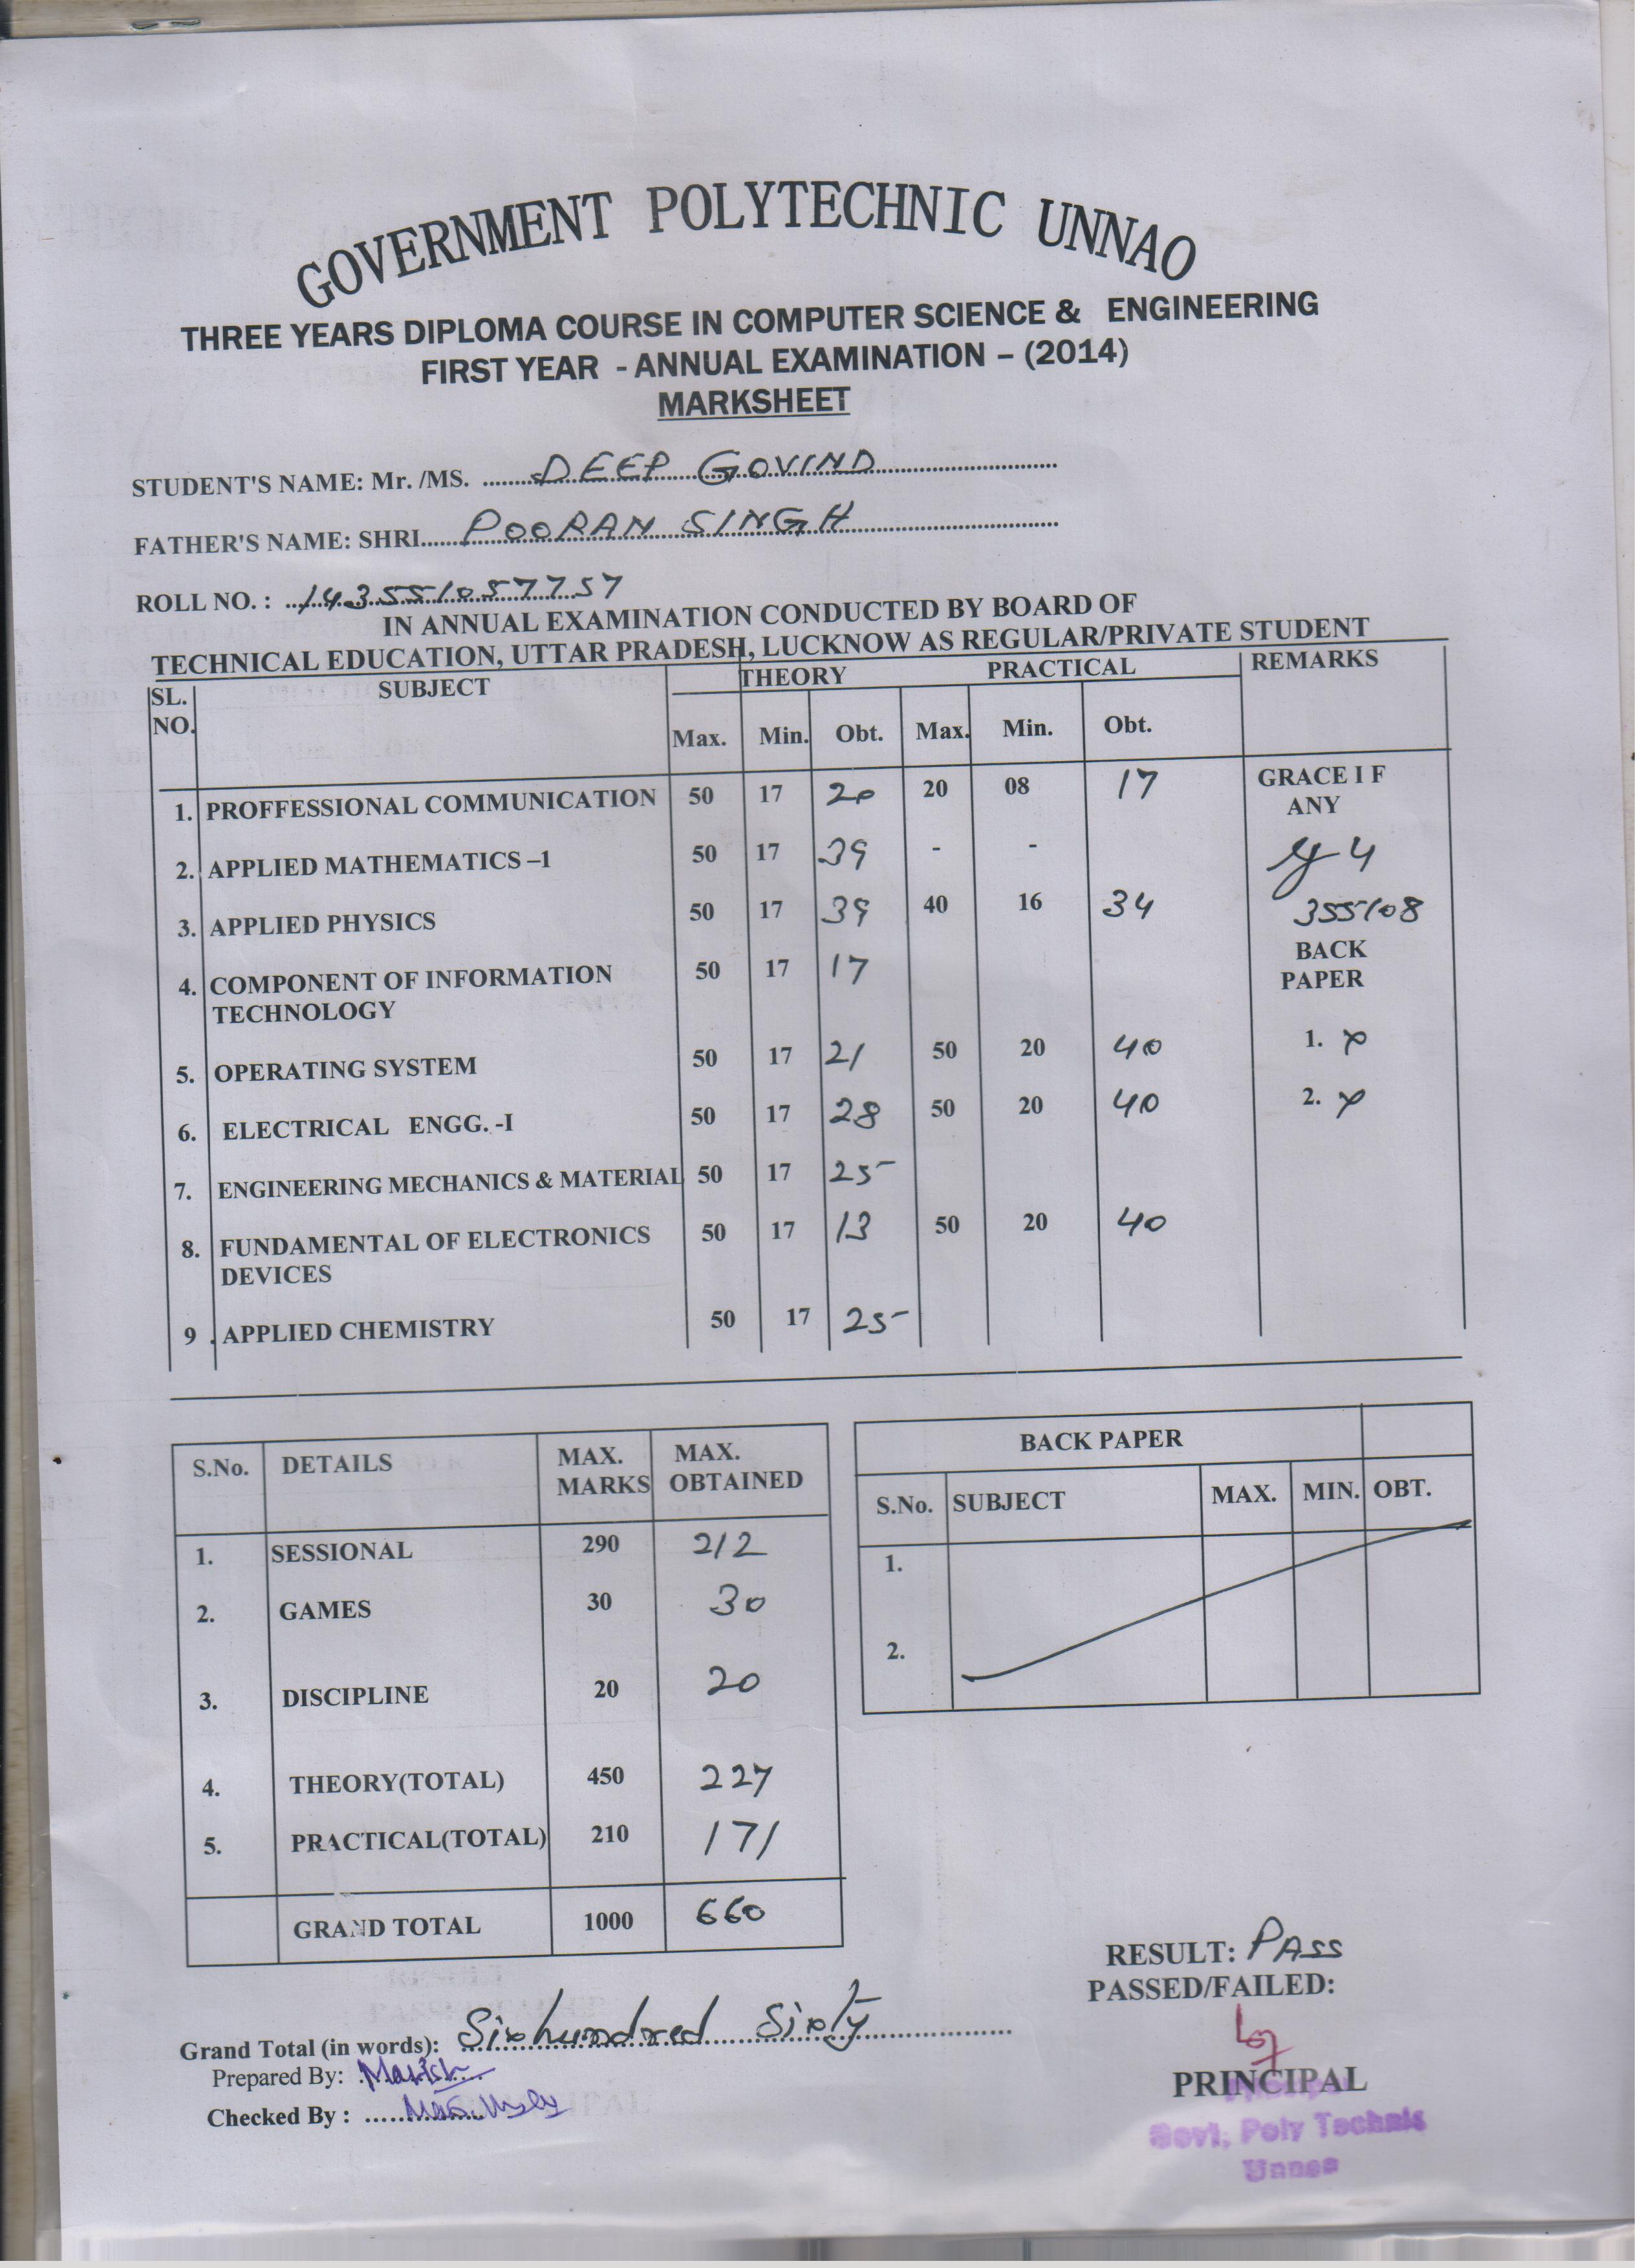 GOVERNMENT POLYTECHNIC UNNAO
THREE YEARS DIPLOMA COURSE IN COMPUTER SCIENCE & ENGINEERING
FIRST YEAR - ANNUAL EXAMINATION – (2014)
MARKSHEET
STUDENT'S NAME: Mr. /MS. DEEP GOVIND
FATHER'S NAME: SHRI POORAN SINGH
ROLL NO. : 14355105７757
IN ANNUAL EXAMINATION CONDUCTED BY BOARD OF
TECHNICAL EDUCATION, UTTAR PRADESH, LUCKNOW AS REGULAR/PRIVATE STUDENT
SL. NO. SUBJECT THEORY PRACTICAL REMARKS
Max. Min. Obt. Max. Min. Obt.
1. PROFFESSIONAL COMMUNICATION 50 17 20 20 08 17 GRACE I F
ANY
2. APPLIED MATHEMATICS –1 50 17 39 - - 4
3. APPLIED PHYSICS 50 17 39 40 16 34 355108
BACK
4. COMPONENT OF INFORMATION 50 17 17 PAPER
TECHNOLOGY
5. OPERATING SYSTEM 50 17 21 50 20 40 1. x
6. ELECTRICAL ENGG. -I 50 17 28 50 20 40 2. x
7. ENGINEERING MECHANICS & MATERIAL 50 17 25
8. FUNDAMENTAL OF ELECTRONICS 50 17 13 50 20 40
DEVICES
9 . APPLIED CHEMISTRY 50 17 25
S.No. DETAILS MAX. MAX.
MARKS OBTAINED
1. SESSIONAL 290 212
2. GAMES 30 30
3. DISCIPLINE 20 20
4. THEORY(TOTAL) 450 227
5. PRACTICAL(TOTAL) 210 171
GRAND TOTAL 1000 660
BACK PAPER
S.No. SUBJECT MAX. MIN. OBT.
1.
2.
RESULT: PASS
PASSED/FAILED:
Grand Total (in words): Sixhundred Sixty
Prepared By: Manish
Checked By :
PRINCIPAL
Govt, Poly Technic
Unnao